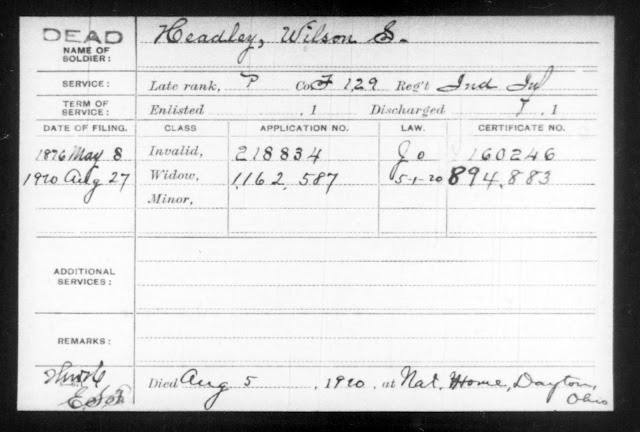 DEAD
NAME OF SOLDIER: Headley, Wilson S.
SERVICE: Late rank, P Co. F 129 Reg't Ind Inf
TERM OF SERVICE: Enlisted , 1 Discharged , 1
DATE OF FILING. CLASS APPLICATION NO. LAW. CERTIFICATE NO.
1876 May 8 Invalid, 218834 160246
1920 Aug 27 Widow, 1,162,587 5-1-20 894,883
Minor,
ADDITIONAL SERVICES:
REMARKS:
Died Aug 5 , 1920, at Nat. Home, Dayton, Ohio